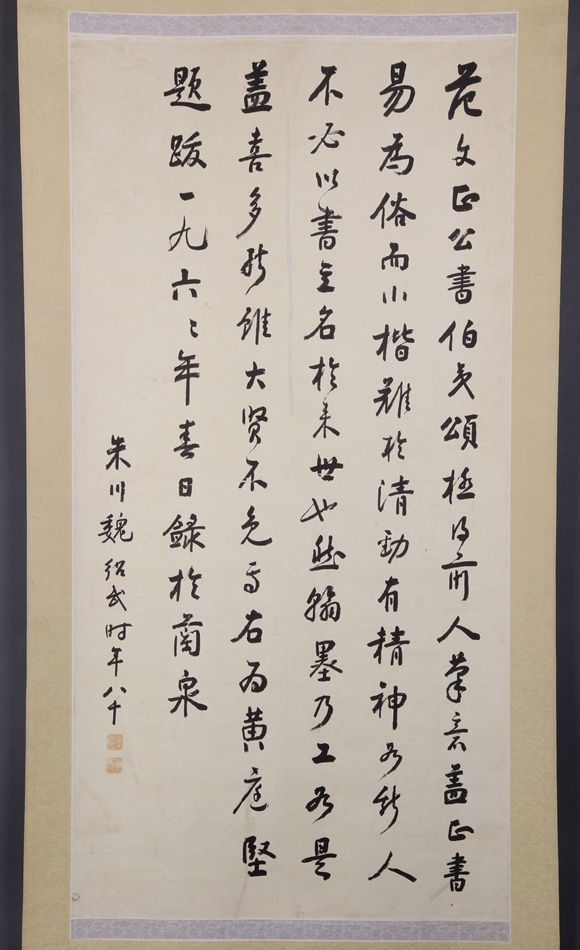 范文正公書伯夷頌極得前人筆意蓋正書
易為俗而小楷難於清勁有精神如斯人
不必以書立名於來世也然翰墨乃工如是
蓋喜多能雖大賢不免焉右為黃庭堅
題跋一九六二年春日録於蘭泉
朱川魏紹武时年八十